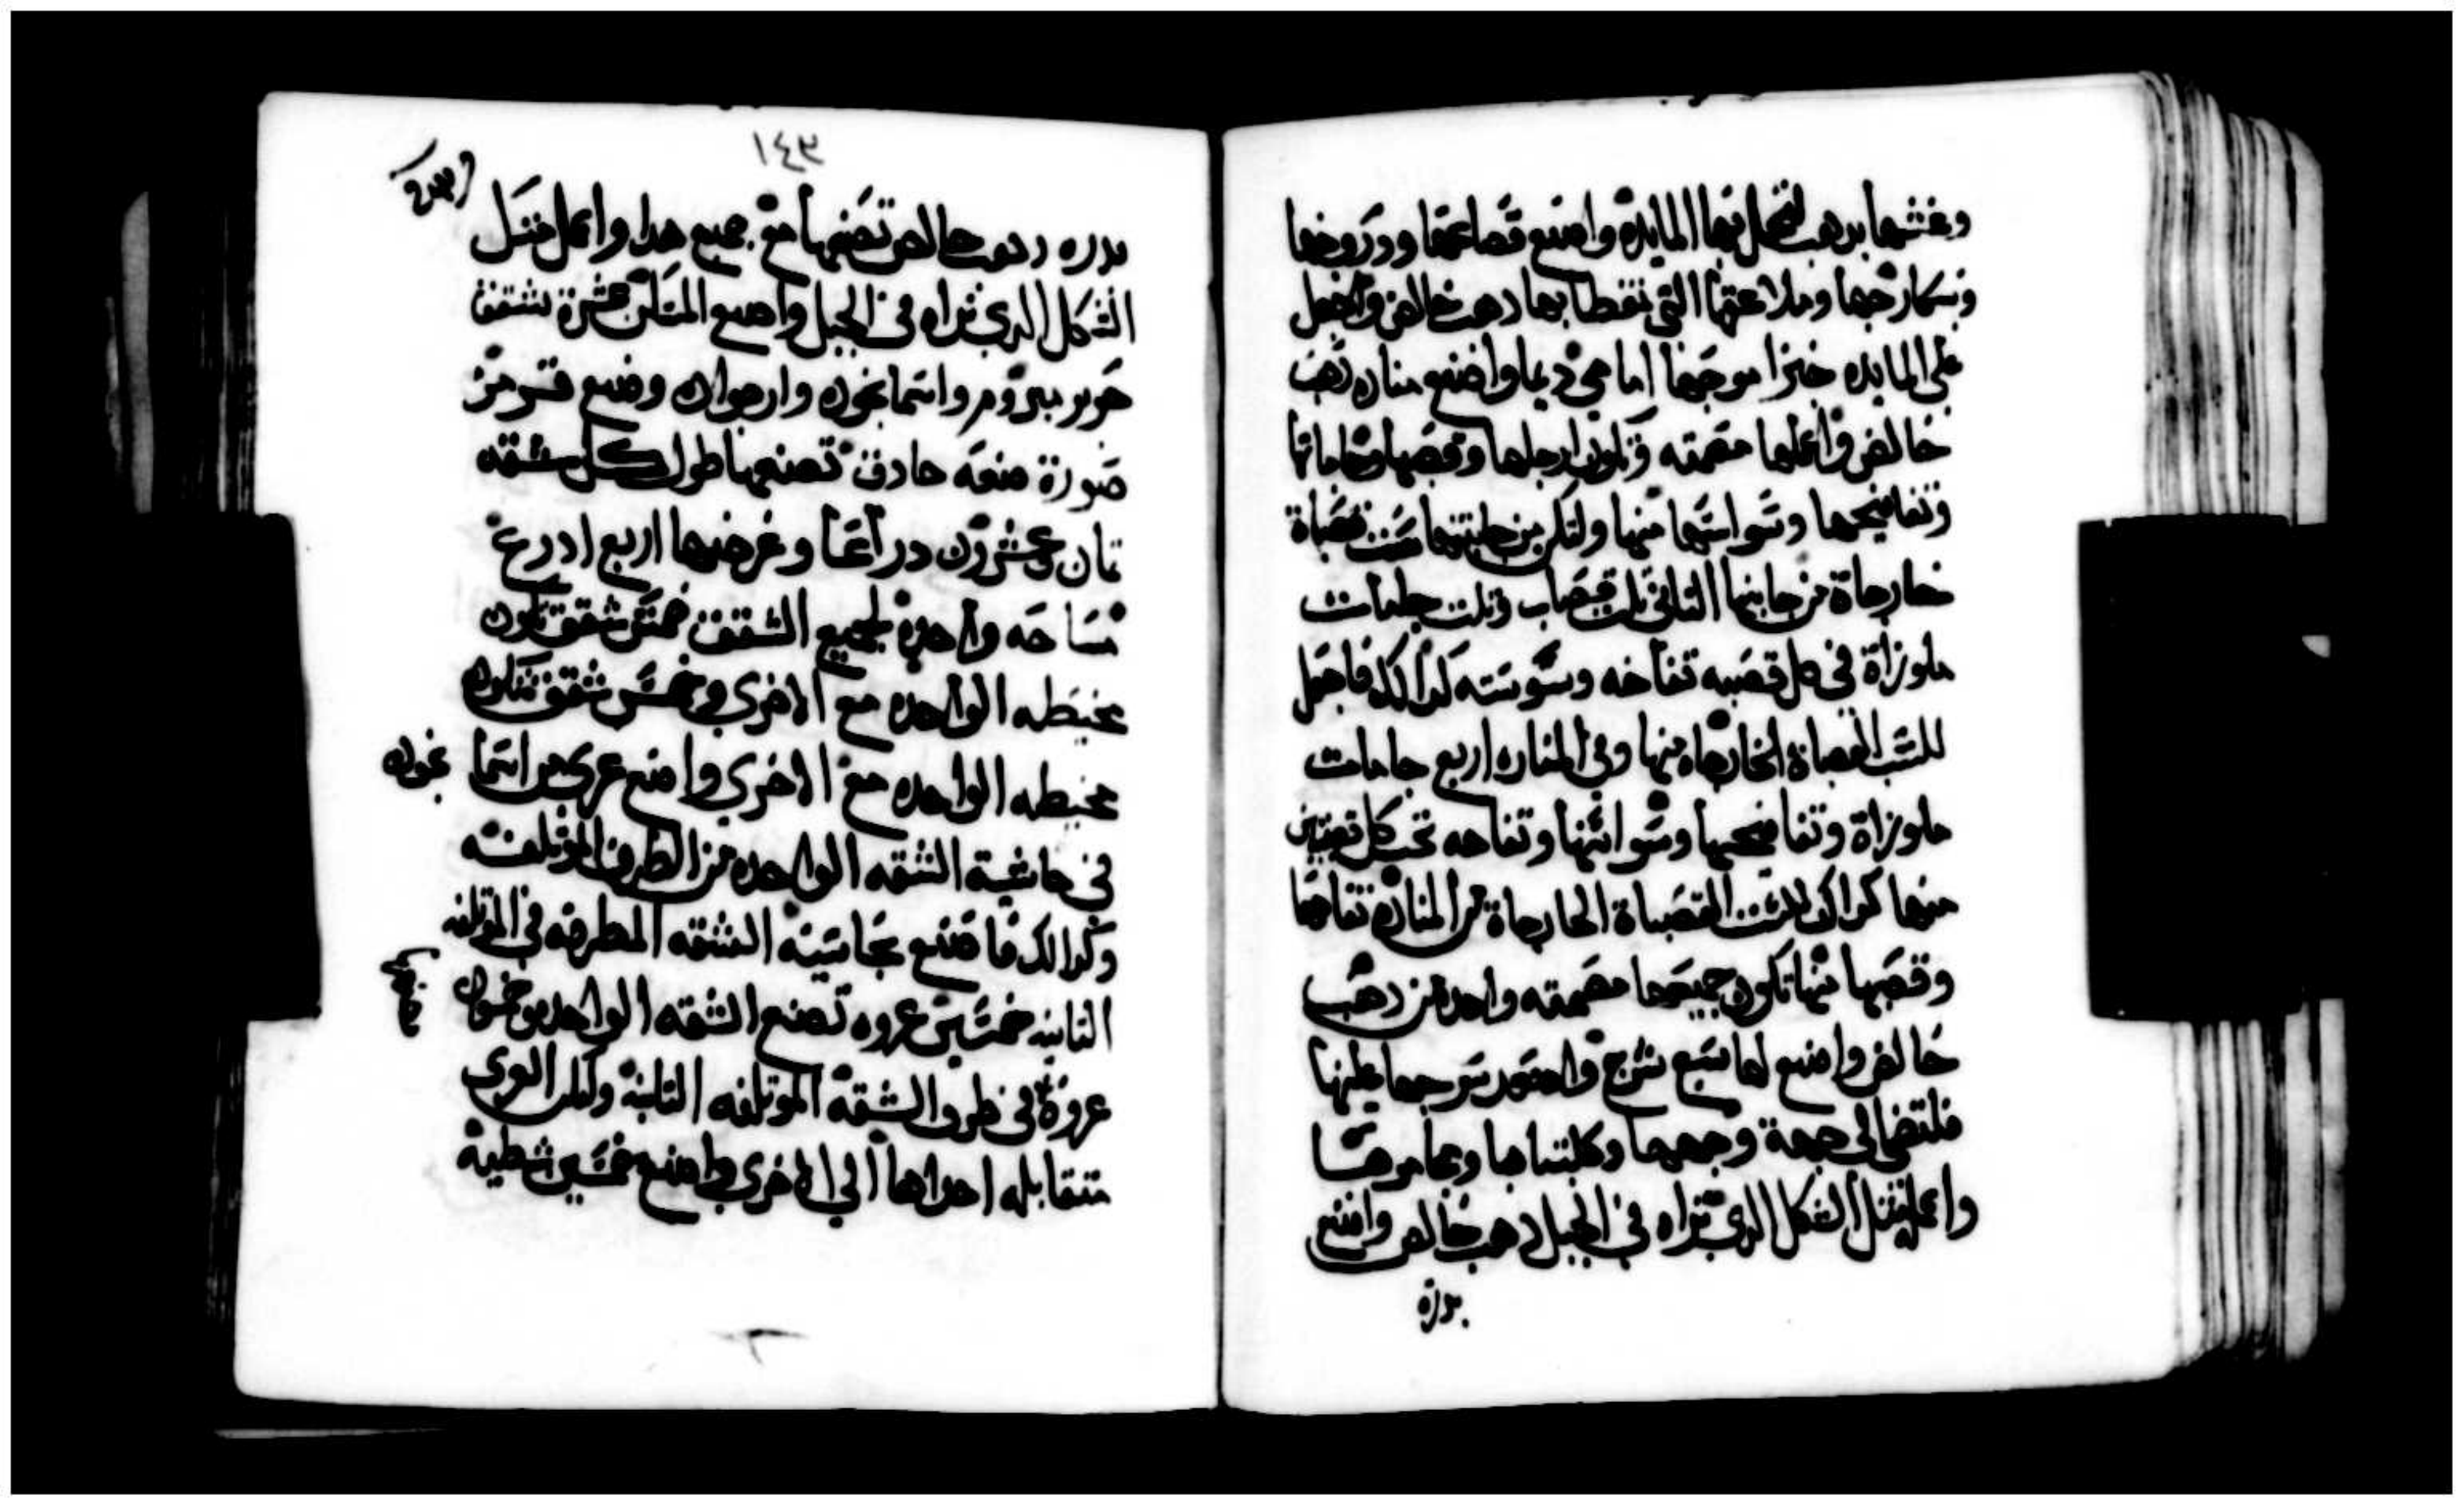 وغشها بدهب لتحمل بها المايدة واصنع قصاعها ودروجها
وسكارجها وملاعقها التي تغطا بها دهب خالص واجعل
على المايده خبزا موجها امامي ديما واصنع مناره دهب
خالص واعملها مصمته وتكون ارجلها وقصبها وجاماتها
وتفافيحها وسواسنها منها ولتكن من جانبيها ست قصباة
خارجاة من جانبها الثاني تلت قصاب وتلت جامات
ملوزاة في كل قصبه تفاحه وسوسنه كدالك فاجعل
للست القصباة الخارجاه منها وفي المناره اربع جامات
ملوزاة وتفافيحها وسواسنها وتفاحه تحت كل قصبتين
منها كدالك للست القصباة الخارجاة من المناره تفاحها
وقصبها منها تكون جميعها مصمته واحده من دهب
خالص واصنع لها سبع سرج واصعد سرجها عليها
فلتضي الى جهة وجهها وكلبتاها ومجامرها
واعمل مثل الشكل الدي تراه في الجبل دهب خالص واصنع
بدرة
١٤٣
بدره دهب خالص تصنعها مع جميع هدا واعمل مثل
الشكل الدي تراه في الجبل واصنع المسكن عشرة شقق
حرير مبروم واسمانجون وارجوان وصبع قرمز
صورة صنعه حادق تصنعها طول كل شقه
تمان وعشرون دراعا وعرضها اربع ادرع
مساحه واحدة لجميع الشقق خمس شقق تكون
مخيطه الواحده مع الاخري وخمس شقق تكون
مخيطه الواحده مع الاخري واصنع عرى من اسما نجون
في حاشية الشقه الواحده من الطرف المؤتلفه
وكدالك فاصنع بحاشية الشقه المطرفه في المؤتلفه
التانيه خمسين عروه تصنع الشقه الواحده وخمسون
عروة في طرف الشقة المؤتلفه الثانية وتكون العرى
متقابله احداها الى الاخرى واصنع خمسين شظية